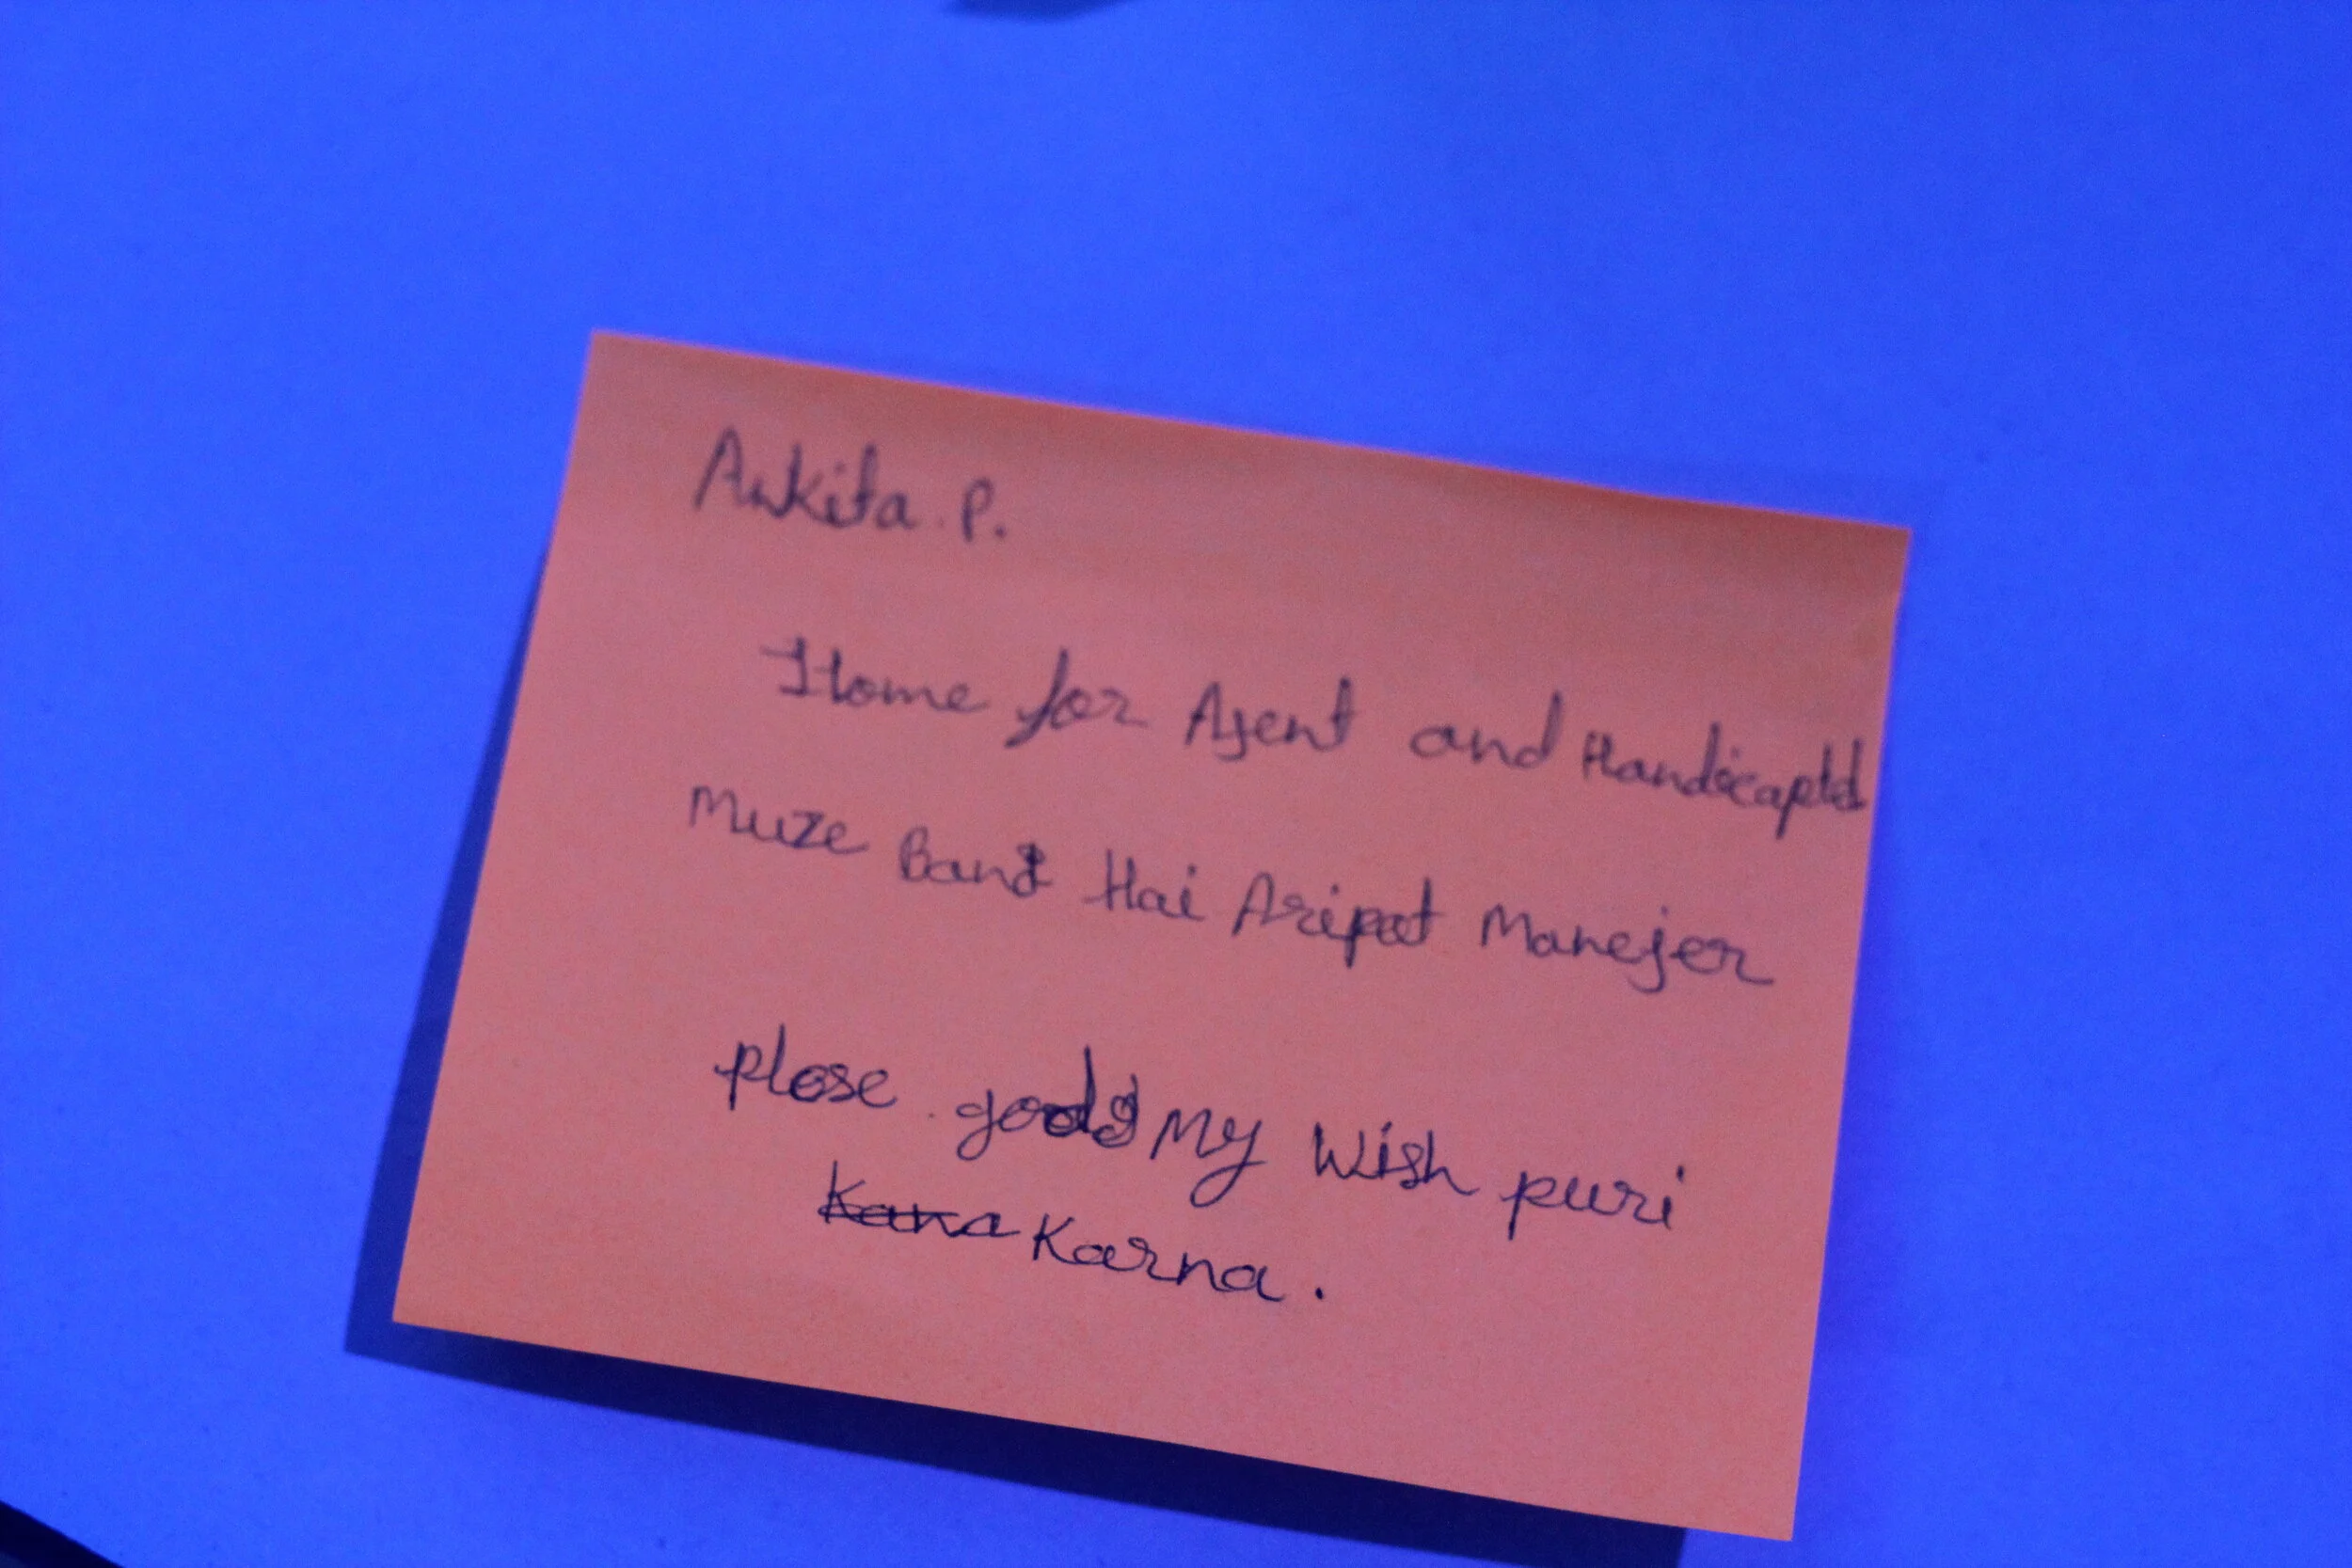 Ankita. P.
Home for Agent and Handicapted
Muze Hai Aripot Manejer
plese My Wish puri
Kana Karna.